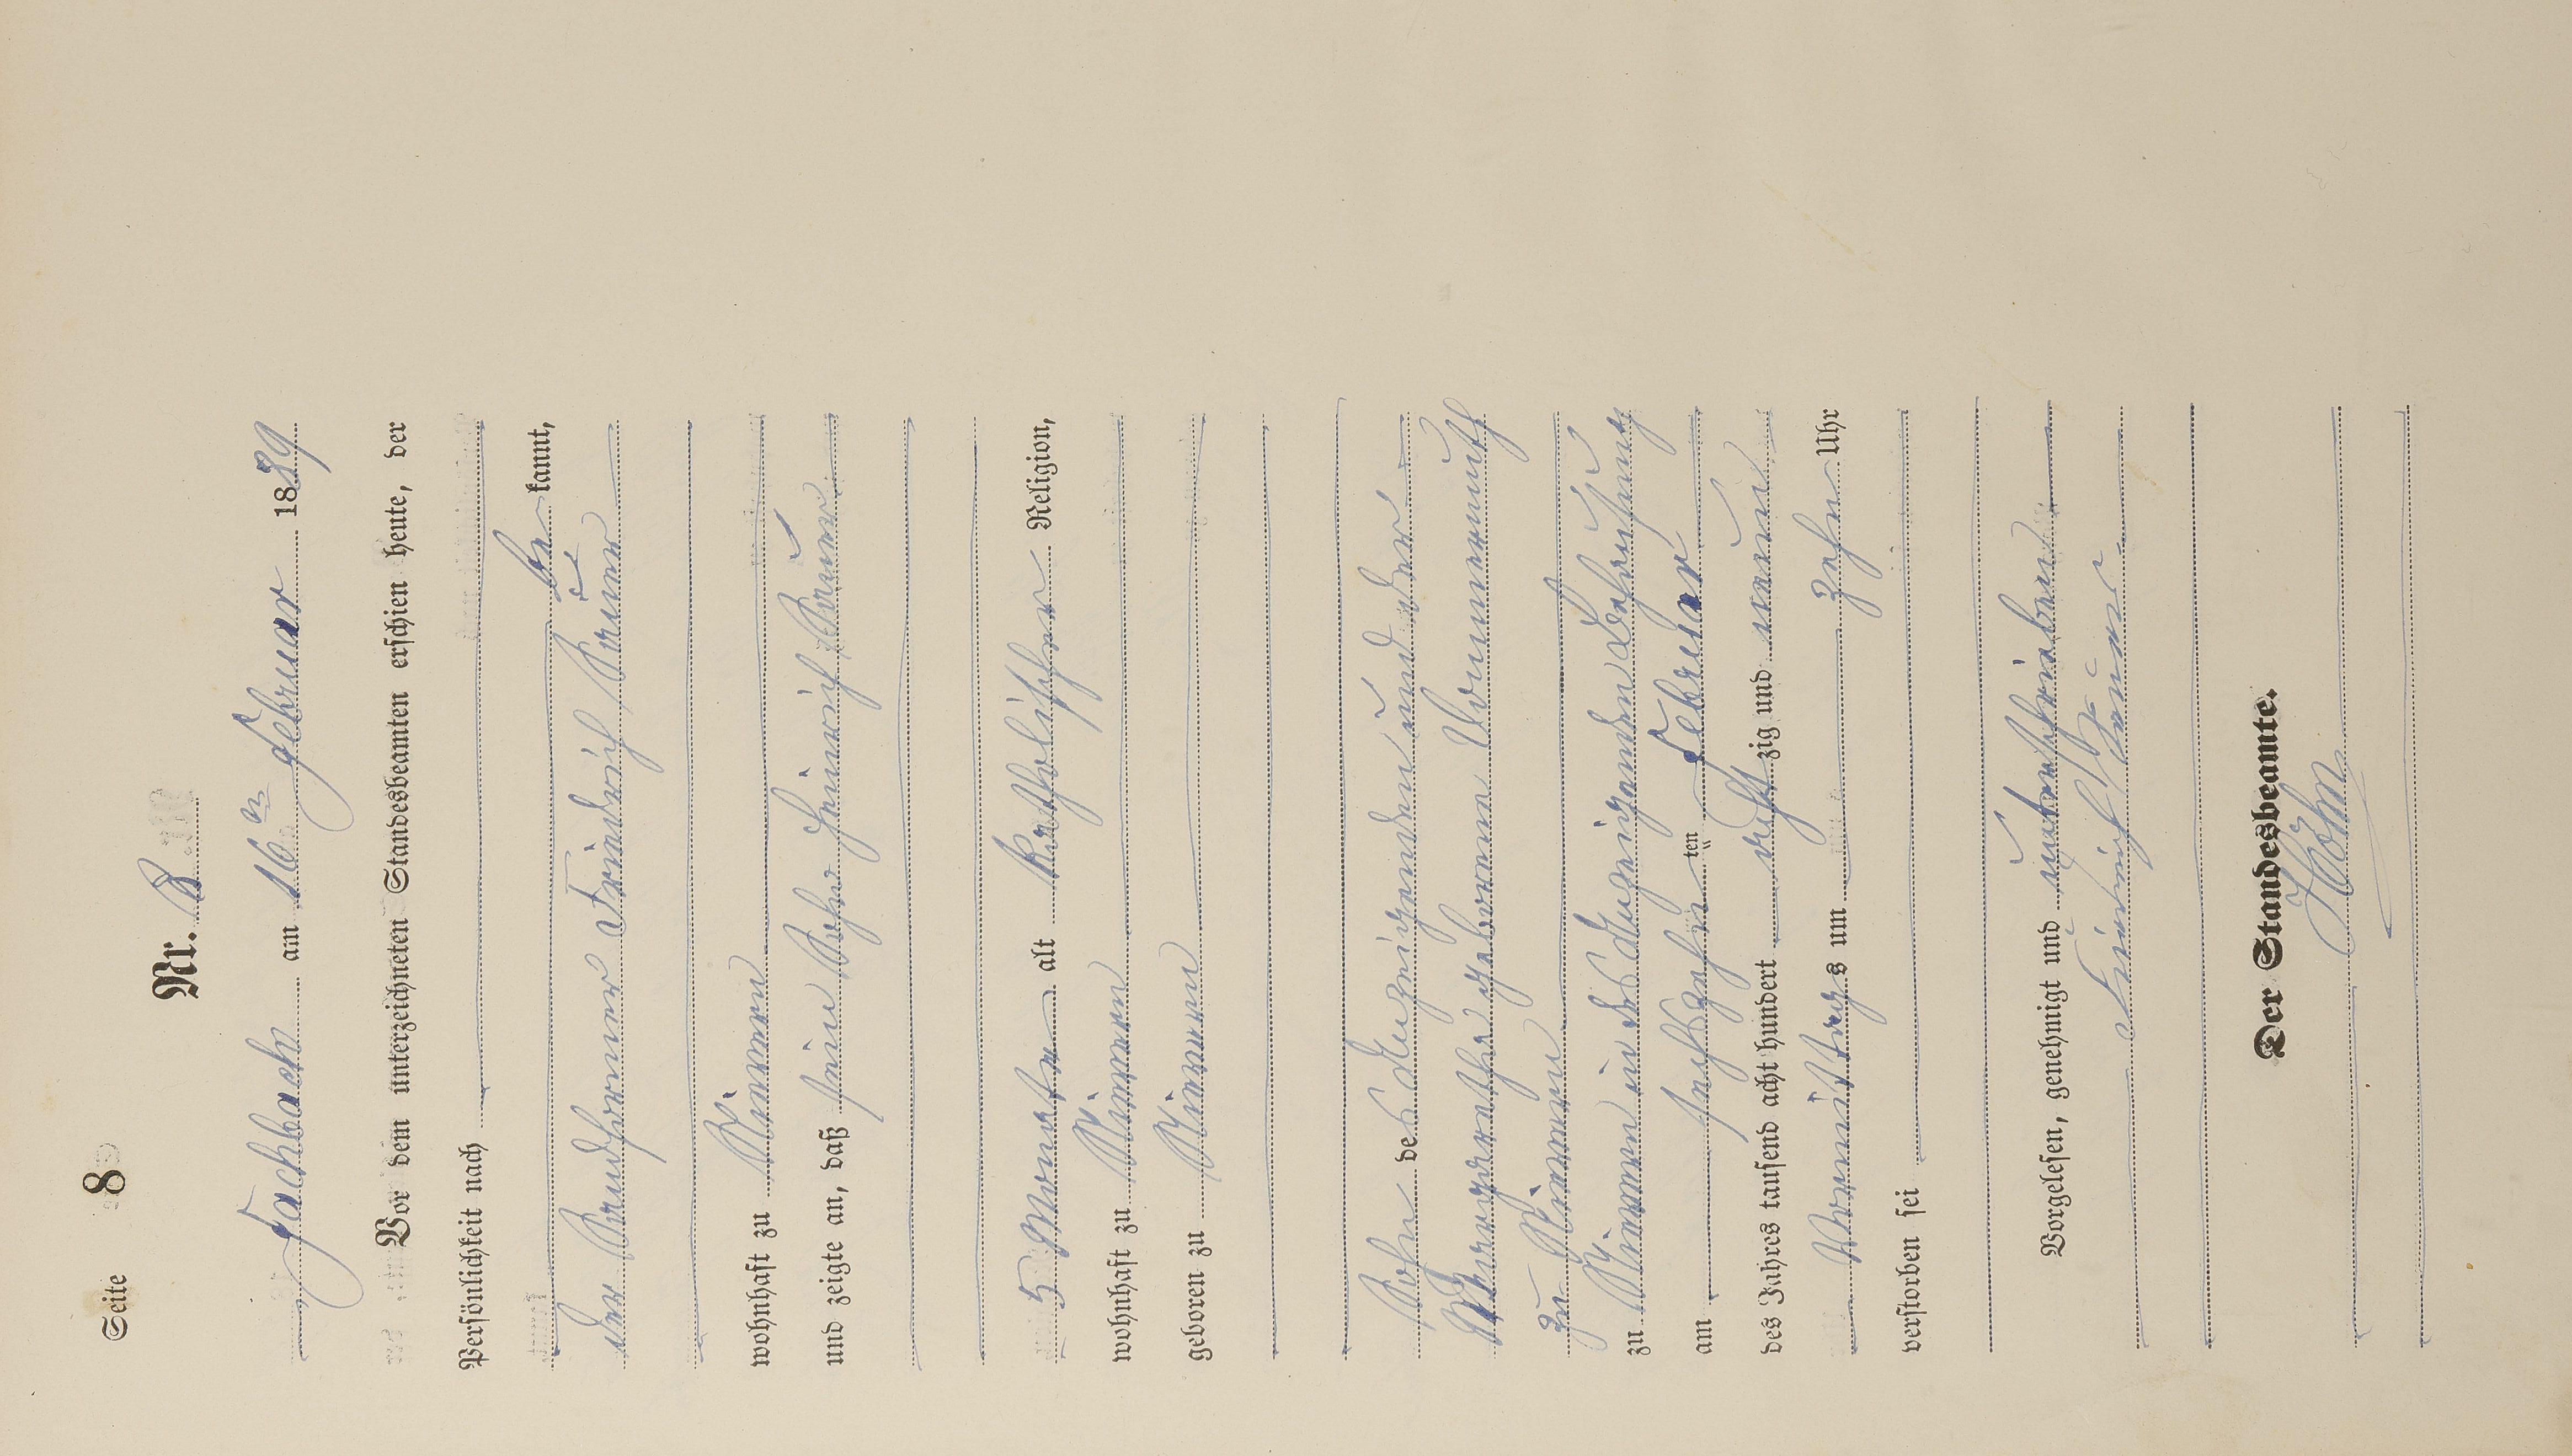 Seite 8
Nr. 8
Fachbach am 16en Februar 1889
Vor dem unterzeichneten Standesbeamten erschien heute, der
Persönlichkeit nach
be kannt,
der Friedrich
wohnhaft zu Nievern
und zeigte an, daß sein Sohn Heinrich
5 Monate alt Katholischer Religion,
wohnhaft zu Nievern
geboren zu Nievern
Sohn des Anzeigenden und der
Margaretha geborenen
zu Nievern
zu Nievern in des Anzeigenden Behausung
am sechszehn ten Februar
des Jahres tausend acht hundert acht zig und neun
Vormittags um zehn Uhr
verstorben sei
Vorgelesen, genehmigt und unterschrieben
Friedrich
Der Standesbeamte.